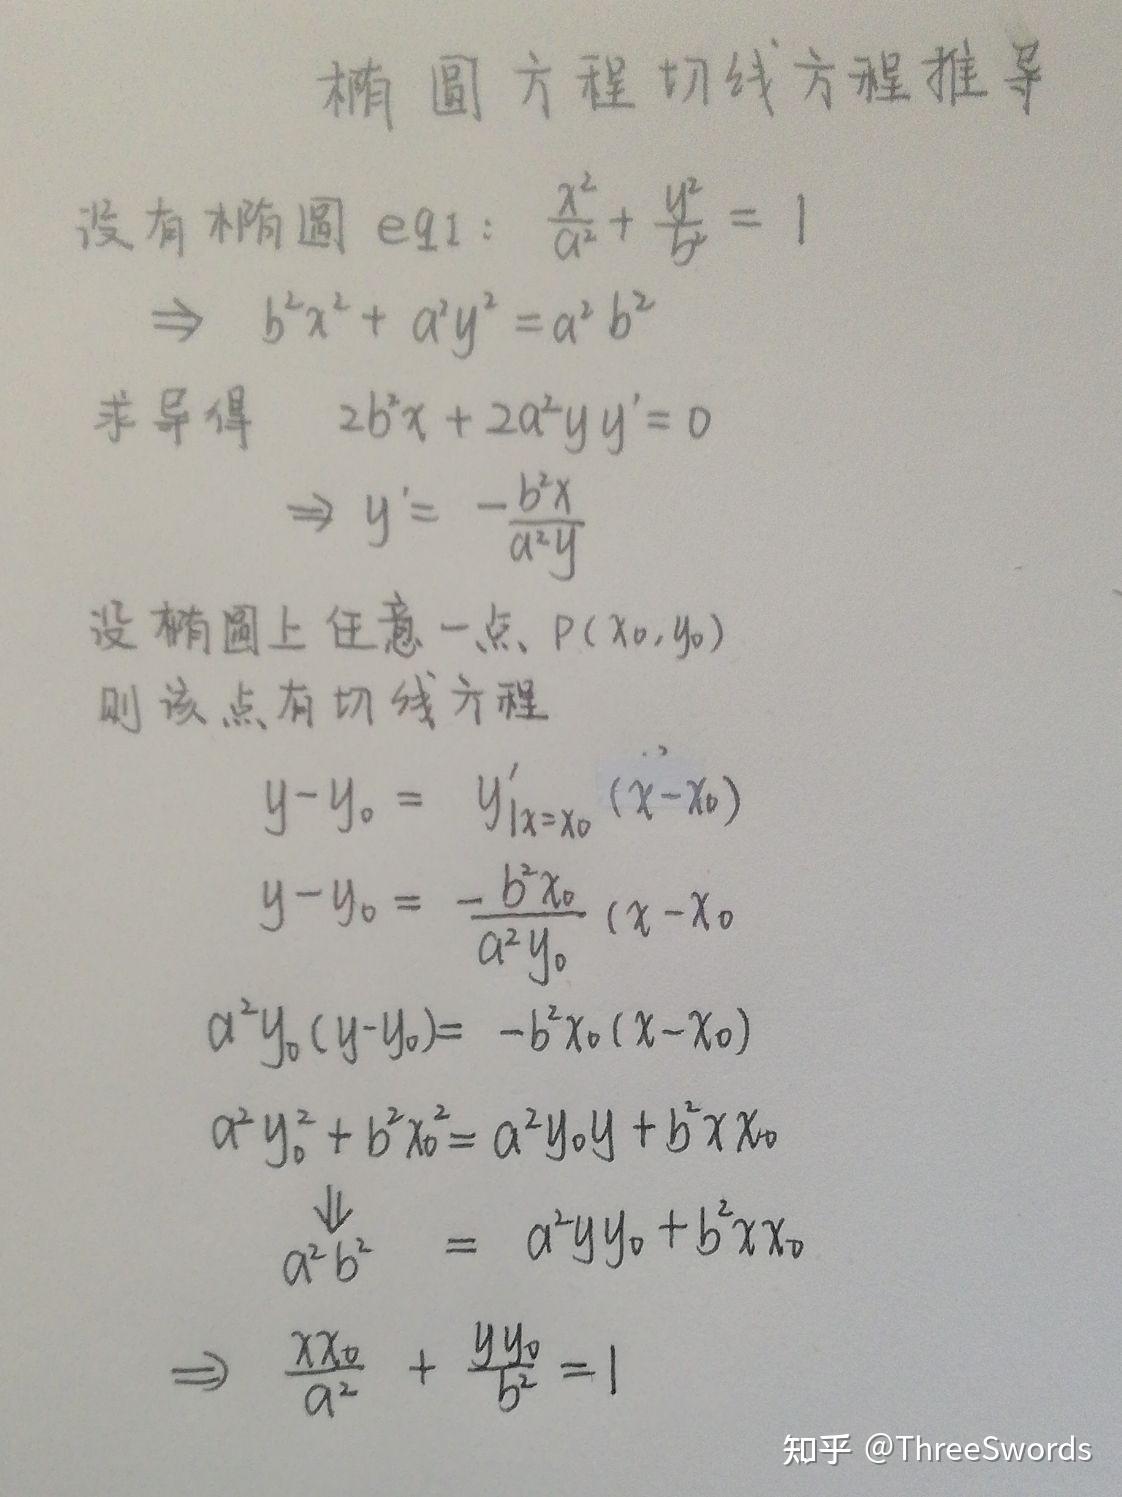 椭圆方程切线方程推导
设有椭圆 eq1: x²/a² + y²/b² = 1
⇒ b²x² + a²y² = a²b²
求导得 2b²x + 2a²yy' = 0
⇒ y' = -b²x/a²y
设椭圆上任意一点 P(x₀,y₀)
则该点有切线方程
y-y₀ = y'|x=x₀ (x-x₀)
y-y₀ = -b²x₀/a²y₀ (x-x₀
a²y₀(y-y₀) = -b²x₀(x-x₀)
a²y₀² + b²x₀² = a²y₀y + b²xx₀
⇓
a²b² = a²yy₀ + b²xx₀
⇒ xx₀/a² + yy₀/b² = 1
知乎 @ThreeSwords